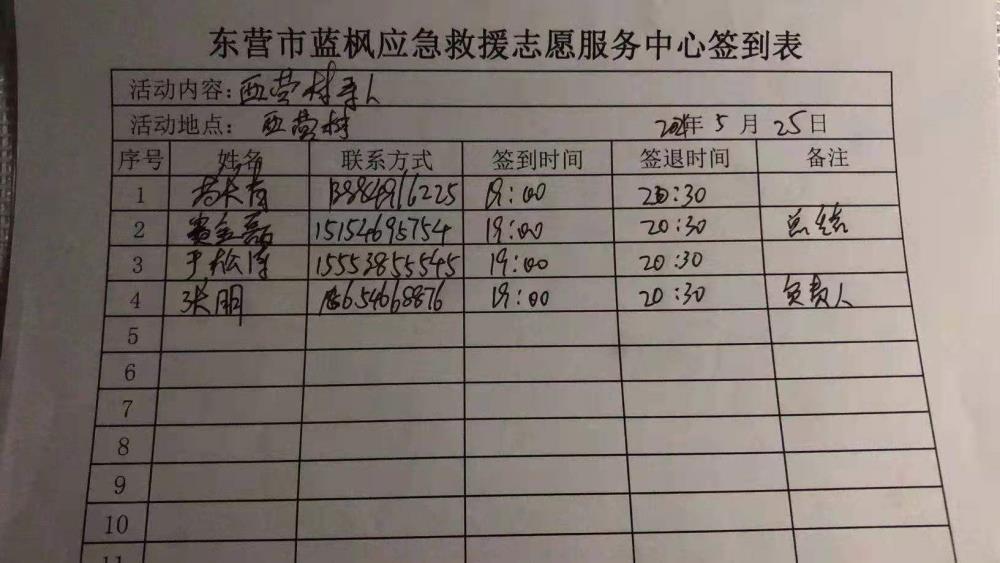 东营市蓝枫应急救援志愿服务中心签到表
活动内容：西营村寻人
活动地点：西营村 年 5 月 25 日
序号 姓名 联系方式 签到时间 签退时间 备注
1 19:00 20:30
2 15154695754 19:00 20:30 总结
3 于松涛 15553855545 19:00 20:30
4 张朋 18654668876 19:00 20:30 负责人
5
6
7
8
9
10
11